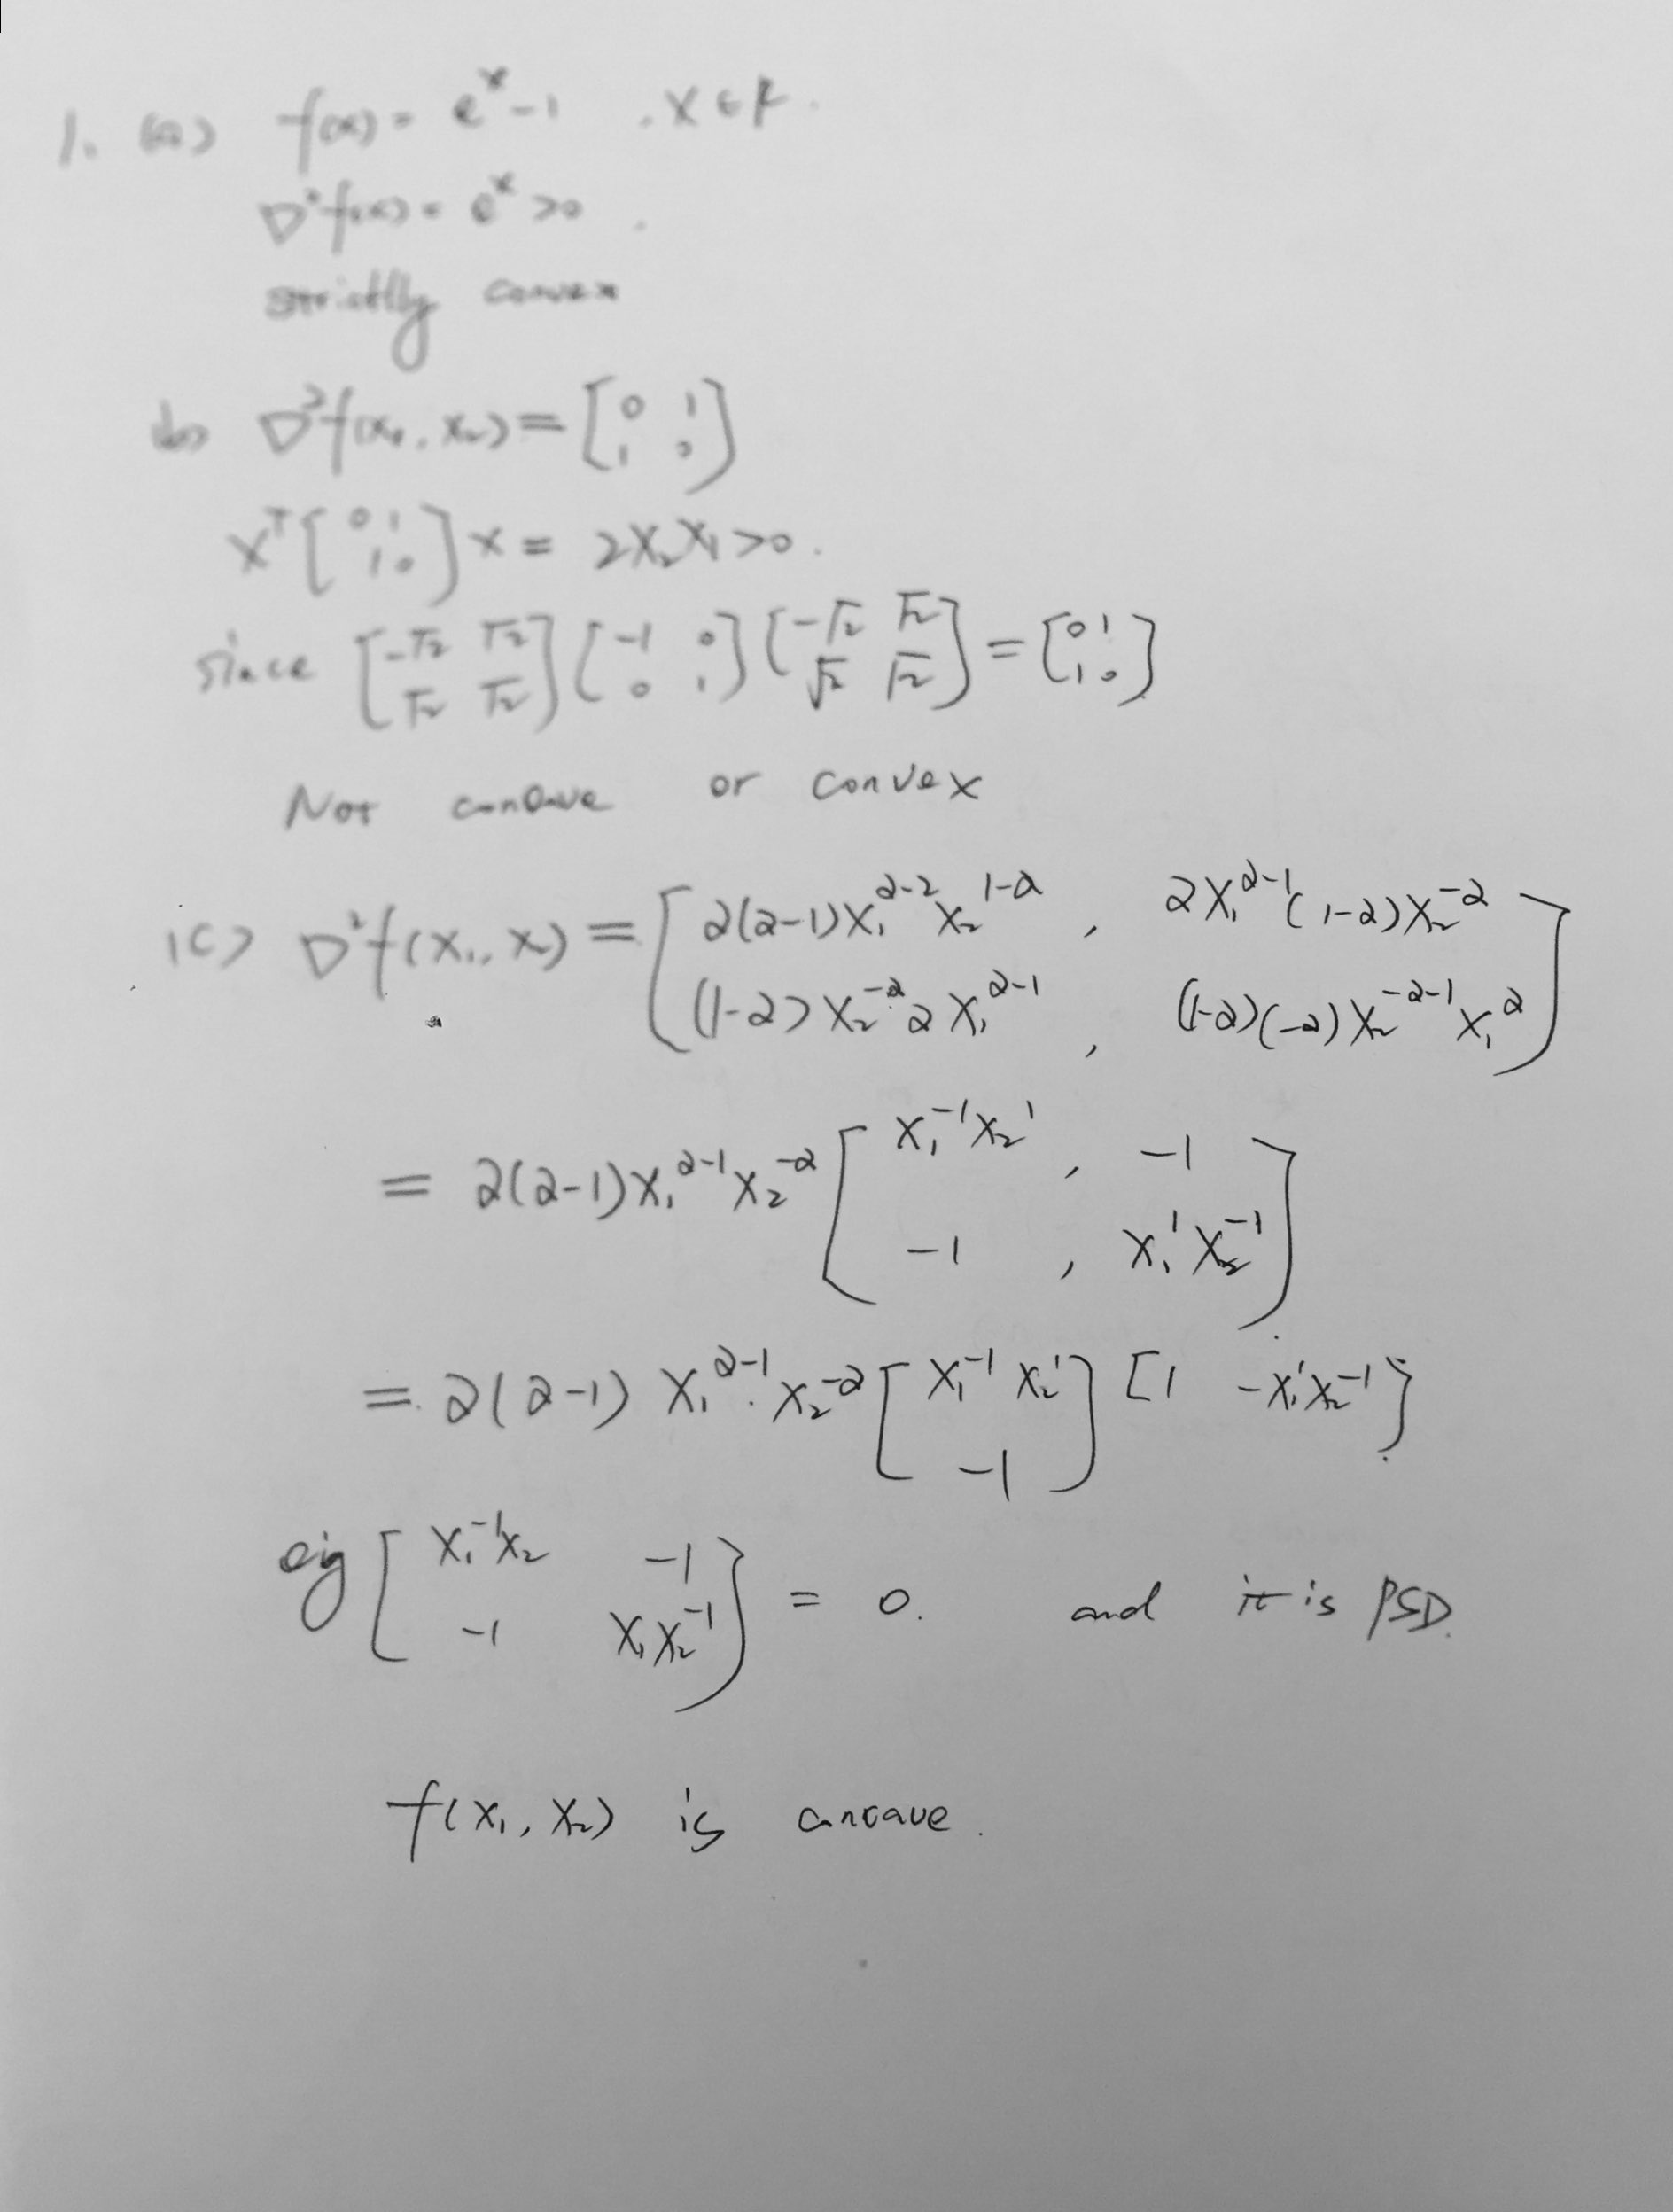 1. (a) f(x) = e^x - 1 , x ∈ R.
∇²f(x) = e^x > 0 .
strictly convex
(b) ∇²f(x₁, x₂) = [0 1; 1 0]
x^T [0 1; 1 0] x = 2x₂x₁ > 0.
since [-√2 √2; √2 √2] [-1 0; 0 1] [-√2 √2; √2 √2] = [0 1; 1 0]
Not concave or convex
(c) ∇²f(x₁, x₂) = [α(α-1)x₁^{α-2}x₂^{1-α} , αx₁^{α-1}(1-α)x₂^{-α}; (1-α)x₂^{-α}αx₁^{α-1} , (1-α)(-α)x₂^{-α-1}x₁^α]
= α(α-1)x₁^{α-1}x₂^{-α} [x₁^{-1}x₂^1 , -1; -1 , x₁^1x₂^{-1}]
= α(α-1) x₁^{α-1}·x₂^{-α} [x₁^{-1} x₂^1; -1] [1 -x₁^1x₂^{-1}]
eig [x₁^{-1}x₂ -1; -1 x₁x₂^{-1}] = 0. and it is PSD.
f(x₁, x₂) is concave.